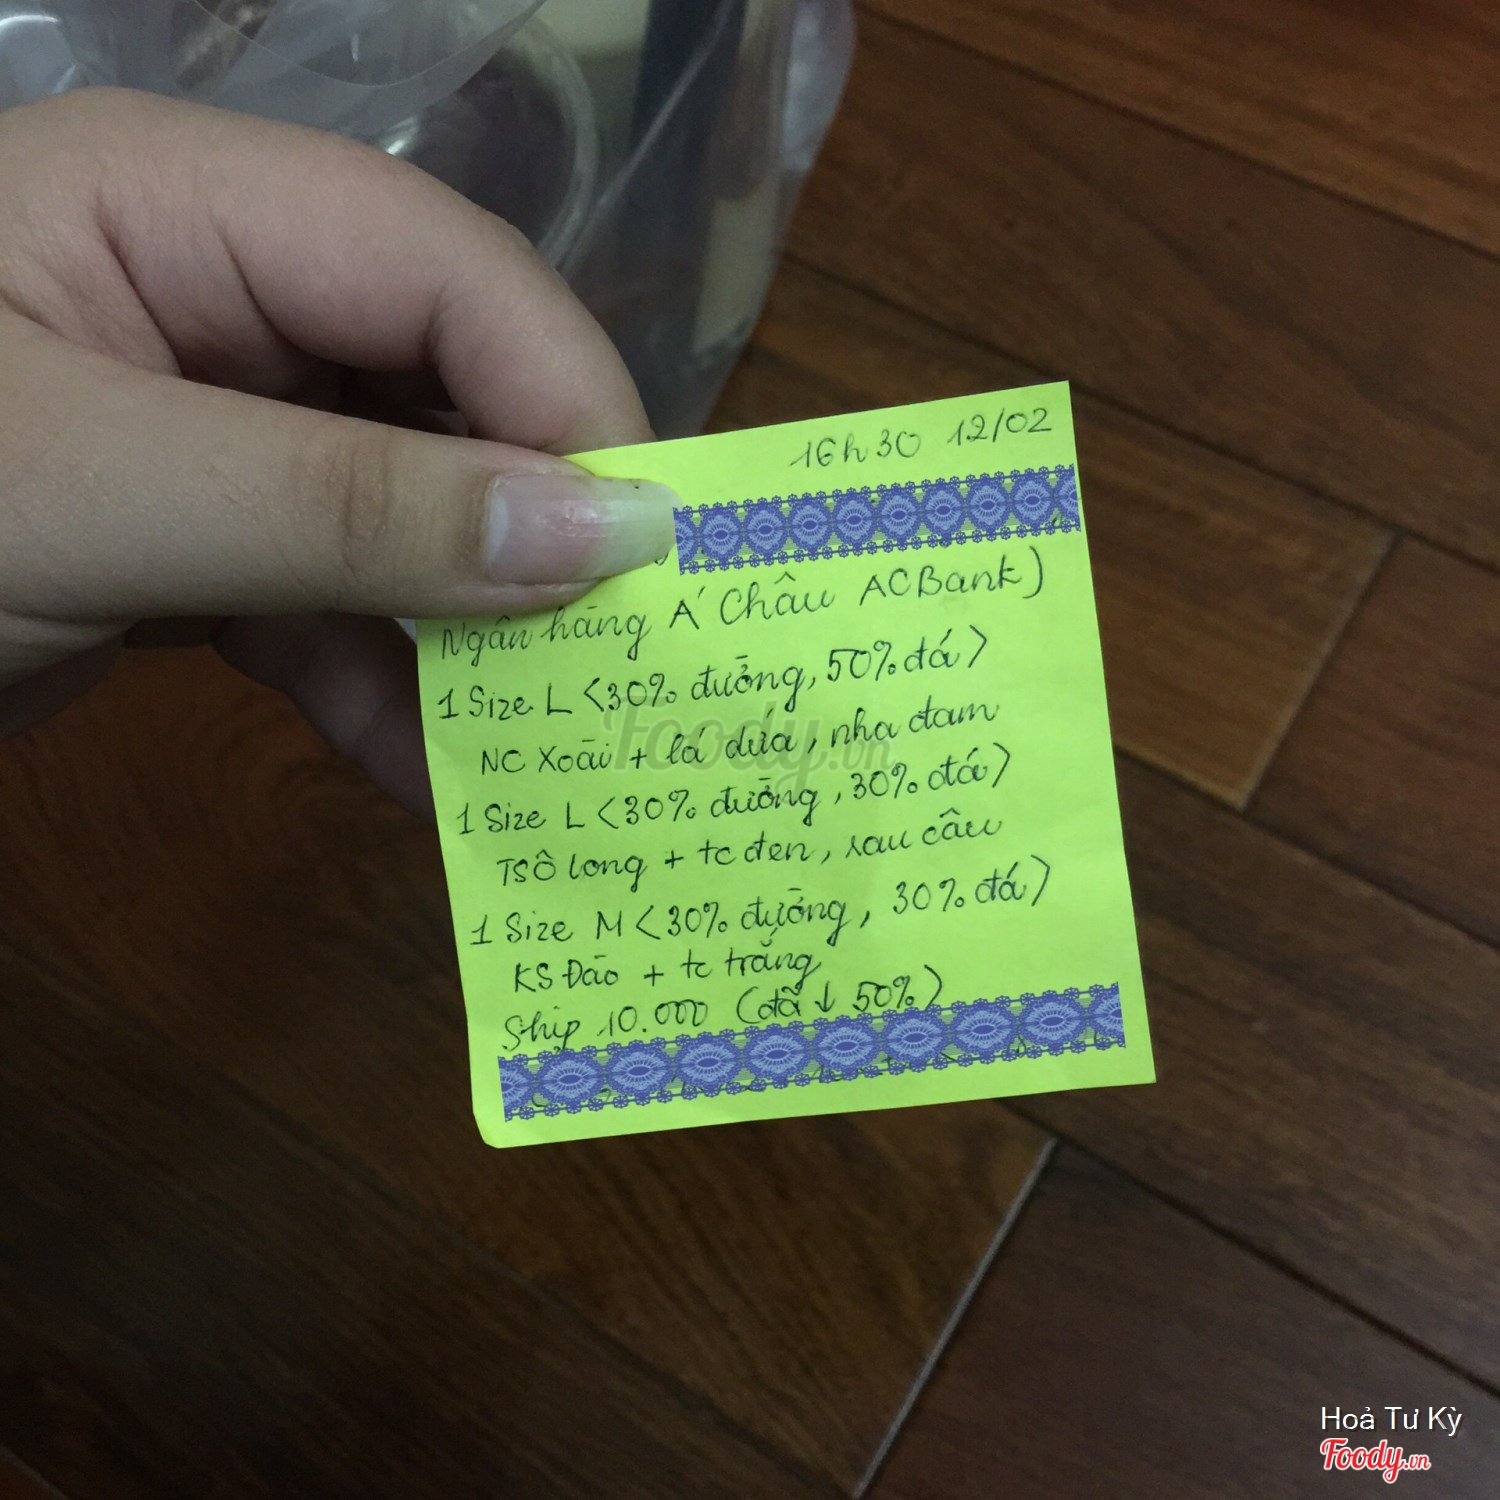 16h30 12/02
Ngân hàng Á Châu ACBank)
1 Size L <30% đường, 50% đá>
NC Xoài + lá dứa, nha đam
1 Size L <30% đường, 30% đá>
TS Ô long + tc đen, rau câu
1 Size M <30% đường, 30% đá>
KS Đào + tc trắng
Ship 10.000 (đã ↓ 50%)
Foody.vn
Hoả Tư Kỳ
Foody.vn